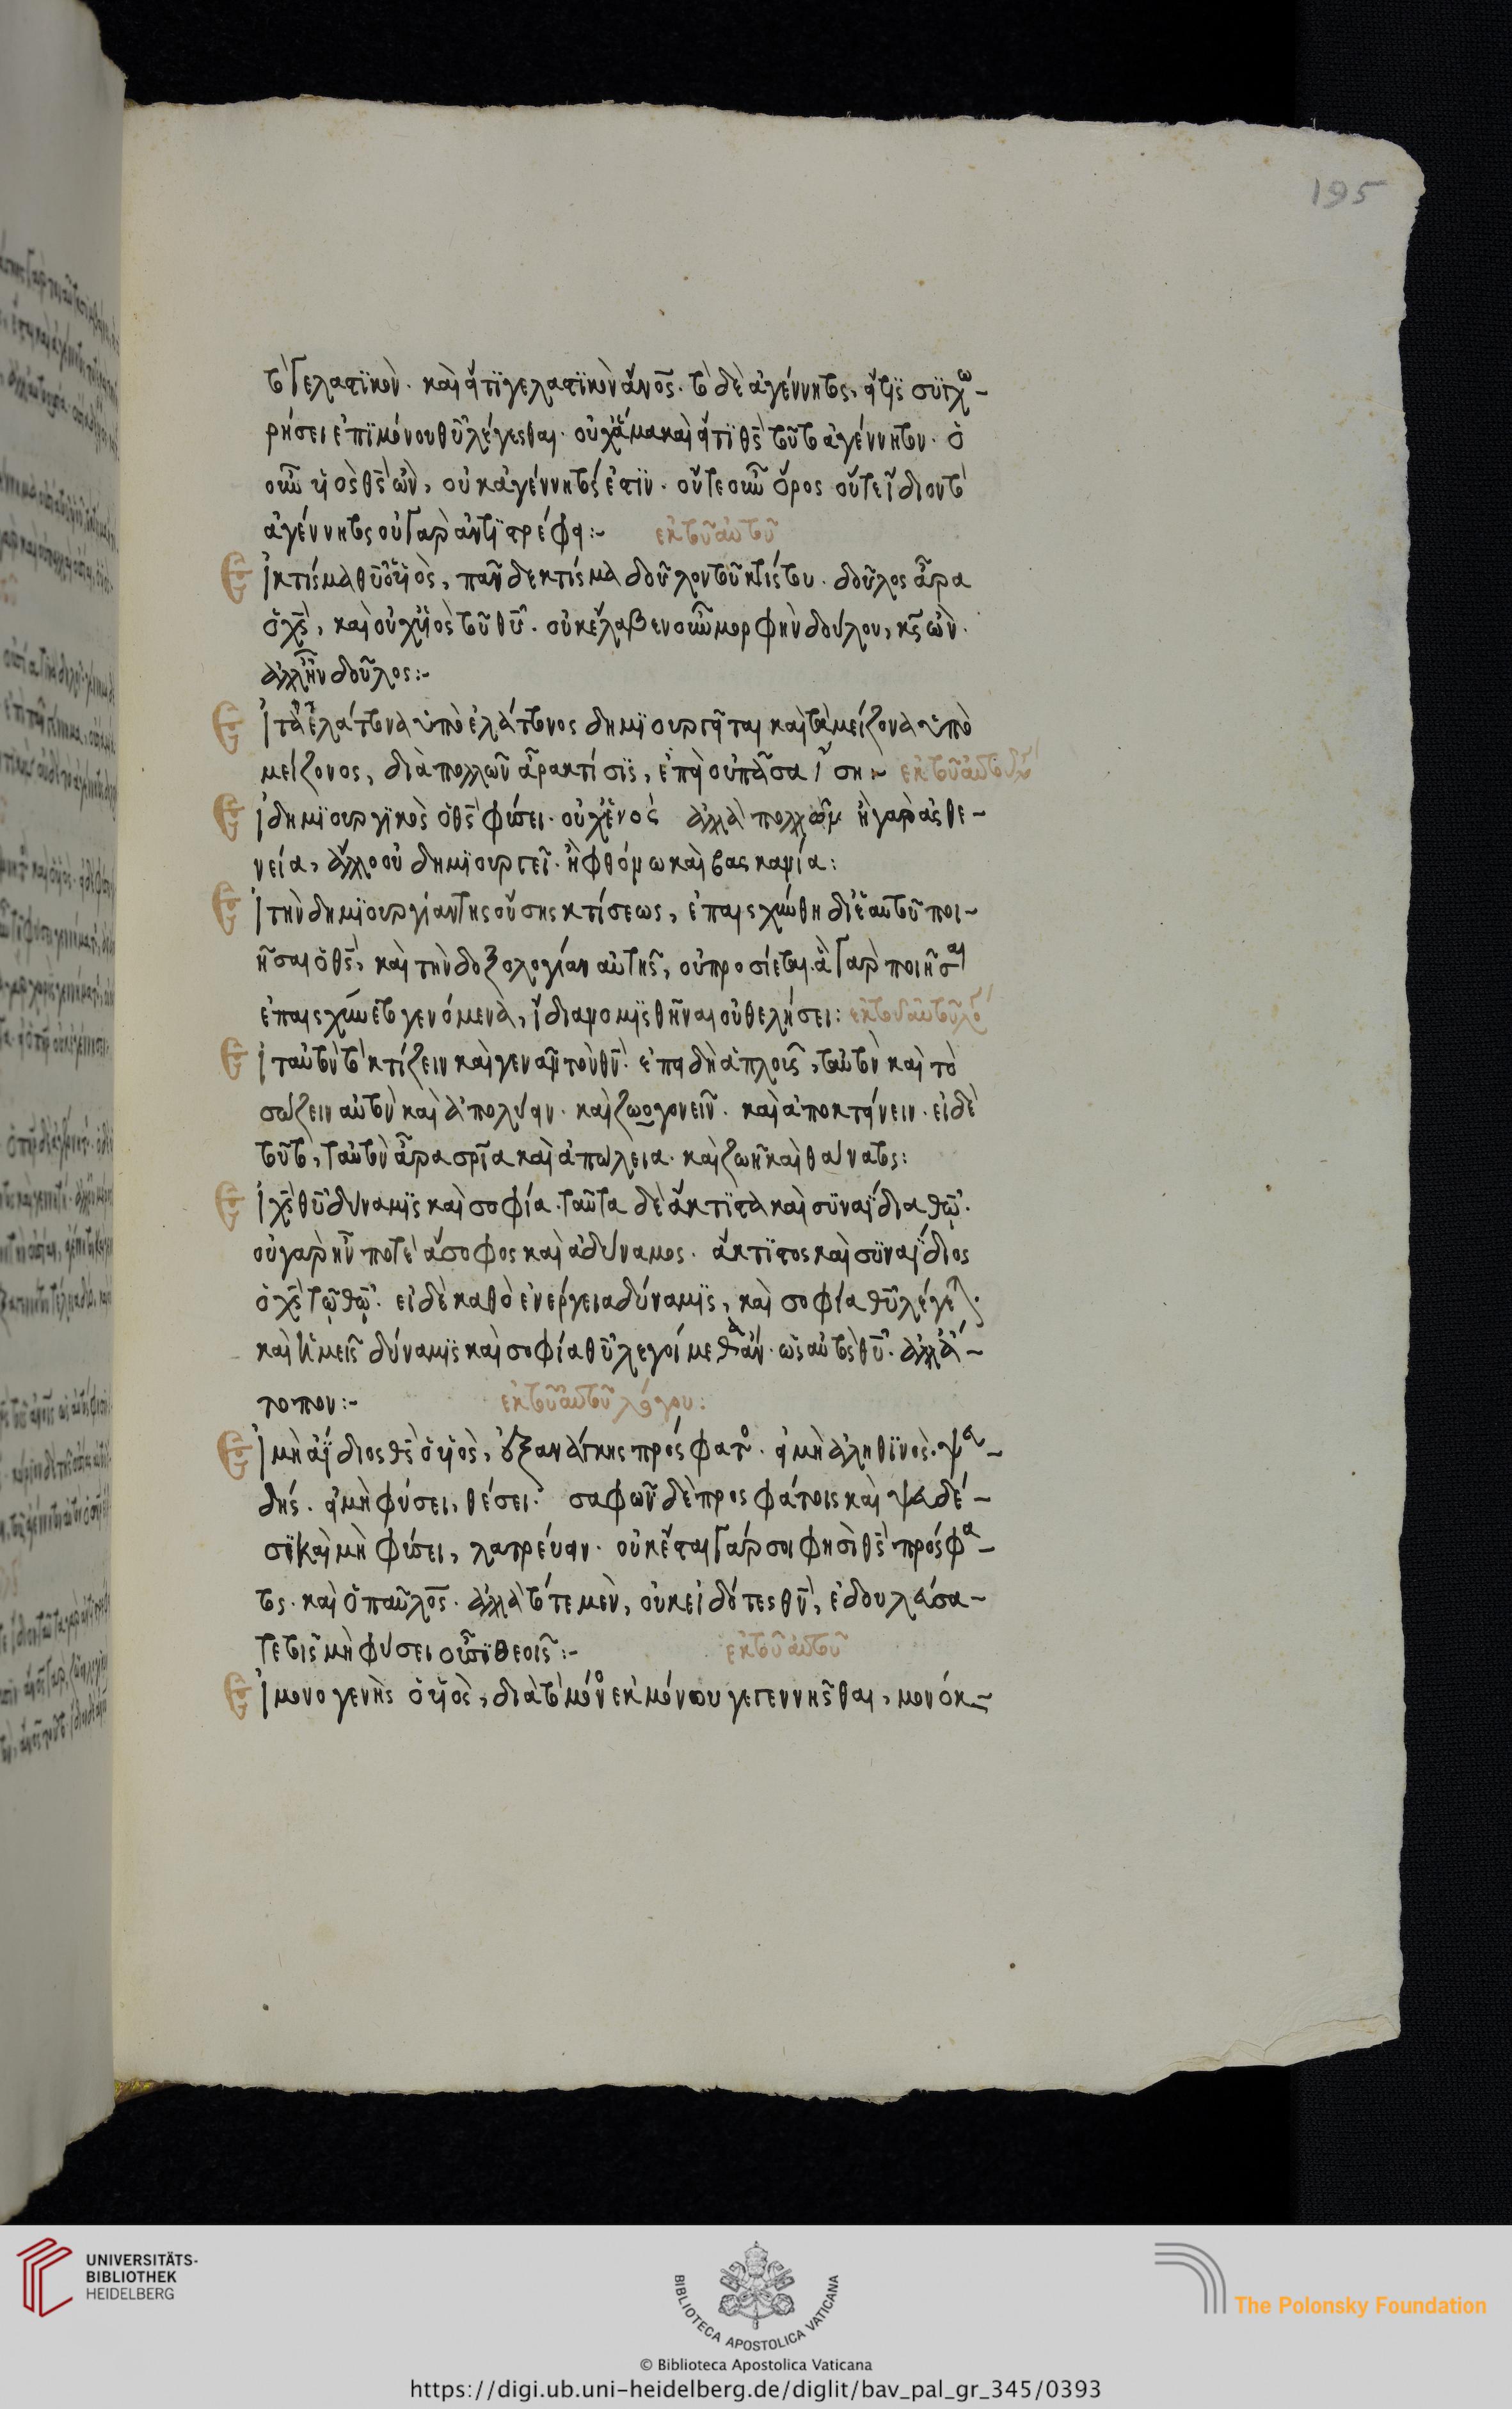 195
τὸ γελαστϊκὸν. καὶ εἴ τϊ γελαστϊκὸν ἄνος. τὸ δὲ ἀγέννητος, εἴ τϊς συγχω-
ρήσει ἐπϊ μόνου θυ λέγεσθαι. οὐχ ἅμα καὶ εἴ τϊ θς τοῦτο ἀγέννητον. ὁ
οὖν υἱὸς θς ὢν, οὐκ ἀγέννητός ἐστϊν. οὔτε οὖν ὅρος οὔτε ἴδιον τὸ
ἀγέννητος οὐ γὰρ ἀντϊστρέφει:- ἐκ τοῦ αὐτοῦ
Εἰ κτίσμα θυ ὁ υἱὸς, πᾶν δὲ κτίσμα δοῦλον τοῦ κτίστου. δοῦλος ἄρα
ὁ χς, καὶ οὐχ υἱὸς τοῦ θυ. οὐκ ἔλαβεν οὖν μορφὴν δούλου, κς ὢν.
ἀλλ' ἦν δοῦλος:-
Εἰ τὰ ἐλάττονα ὑπὸ ἐλάττονος δημϊουργεῖται καὶ τὰ μείζονα ὑπὸ
μείζονος, διὰ πολλῶν ἄρα κτίσϊς, ἐπεὶ οὐ πᾶσα ἴση:- ἐκ τοῦ αὐτοῦ
Εἰ δημϊουργϊκὸς ὁ θς φύσει. οὐχ ἑνὸς ἀλλὰ πολλῶν ἢ γὰρ ἀσθε-
νεία, ἄλλο οὐ δημϊουργεῖ. ἢ φθόνω καὶ βασκανία:
Εἰ τὴν δημϊουργίαν τῆς οὔσης κτίσεως, ἐπαισχύνθη δι' ἑαυτοῦ ποι-
ῆσαι ὁ θς, καὶ τὴν δοξολογίαν αὐτῆς, οὐ προσίεται. ἃ γὰρ ποιῆσαι
ἐπαισχύνετο γενόμενα, ἴδια νομϊσθῆναι οὐ θελήσει: ἐκ τοῦ αὐτοῦ λό
Εἰ ταὐτὸν τὸ κτίζειν καὶ γεννᾶν τὸν θν. ἐπειδὴ ἁπλοῦς, ταὐτὸν καὶ τὸ
σώζειν αὐτὸν καὶ ἀπολύειν. καὶ ζωογονεῖν. καὶ ἀποκτείνειν. εἰ δὲ
τοῦτο, ταὐτὸν ἄρα σρία καὶ ἀπώλεια. καὶ ζωὴ καὶ θάνατος:
Εἰ χς θυ δύναμϊς καὶ σοφία. ταῦτα δὲ ἄκτϊστα καὶ συναΐδια θω.
οὐ γὰρ ἦν ποτὲ ἄσοφος καὶ ἀδύναμος. ἄκτϊστος καὶ συναΐδιος
ὁ χς τῷ θω. εἰ δὲ καθὸ ἐνεργεία δύναμϊς, καὶ σοφία θυ λέγε
καὶ ἡμεῖς δύναμϊς καὶ σοφία θυ λεγοίμεθα ἄν. ὡς αὐτὸς θυ. ἀλλ' ἄ-
τοπον:- ἐκ τοῦ αὐτοῦ λόγου:
Εἰ μὴ ἀΐδιος θς ὁ υἱὸς, ἐξ ἀνάγκης πρόσφατο. εἰ μὴ ἀληθϊνὸς. ψευ-
δής. εἰ μὴ φύσει, θέσει. σαφῶν δὲ προσφάτοις καὶ ψευδέ-
σϊ καὶ μὴ φύσει, λατρεύειν. οὐκ ἔσται γάρ σοι φησὶ θς πρόσφα-
τος. καὶ ὁ παῦλος. ἀλλὰ τότε μὲν, οὐκ εἰδότες θν, ἐδουλεύσα-
τε τοῖς μὴ φύσει οὖσϊ θεοῖς:- ἐκ τοῦ αὐτοῦ
Εἰ μονογενὴς ὁ υἱὸς, διὰ τὸ μόνον ἐκ μόνου γεγεννῆσθαι, μονόκ-
UNIVERSITÄTS-
BIBLIOTHEK
HEIDELBERG
BIBLIOTECA APOSTOLICA VATICANA
The Polonsky Foundation
© Biblioteca Apostolica Vaticana
https://digi.ub.uni-heidelberg.de/diglit/bav_pal_gr_345/0393